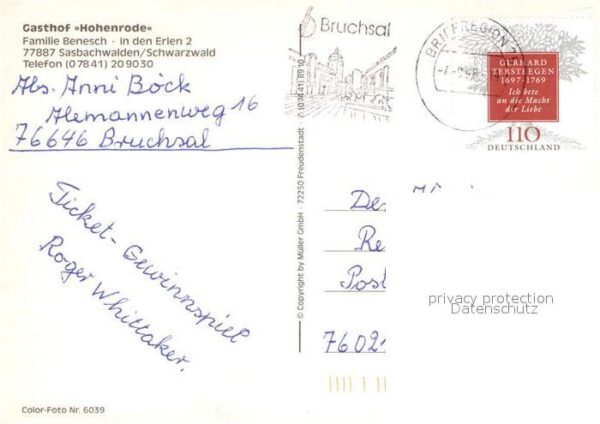 Gasthof »Hohenrode«
Familie Benesch · In den Erlen 2
77887 Sasbachwalden/Schwarzwald
Telefon (0 78 41) 20 90 30
Abs. Anni Böck
Alemannenweg 16
76646 Bruchsal
Ticket-Gewinnspiel
Roger Whittaker.
Color-Foto Nr. 6039
© Copyright by Müller GmbH · 72250 Freudenstadt · (0 74 41) 89 10
Bruchsal
BRIEFREGION
GERHARD
TERSTEEGEN
1697-1769
Ich bete
an die Macht
der Liebe
110
DEUTSCHLAND
De
Re
Post
7602
privacy protection
Datenschutz